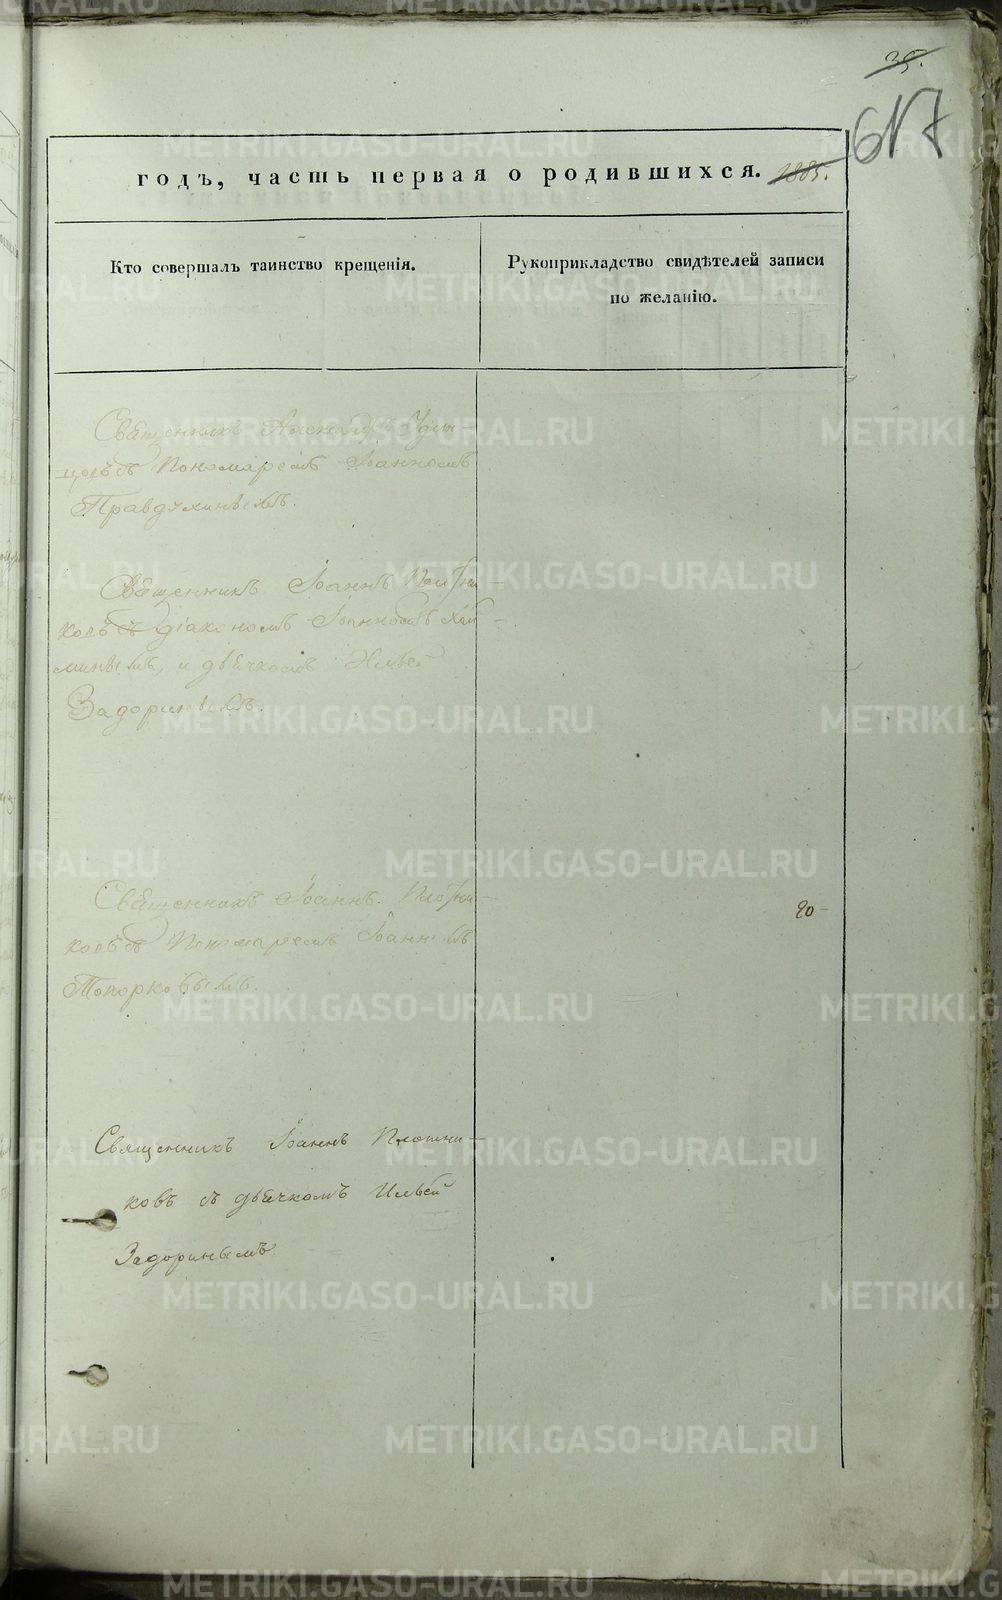 35.
617
годъ, часть первая о родившихся. 1885.
Кто совершалъ таинство крещенія.
Рукоприкладство свидѣтелей записи
по желанію.
Священникъ
Пономаремъ Іоанномъ
Правдухинымъ.
Священникъ Іоаннъ Плотни-
ковъ съ діакономъ Іоанномъ
и дьячкомъ Ильей
Задоринымъ.
Священникъ Іоаннъ Плотни-
ковъ съ Пономаремъ Іоанномъ
Топорковымъ.
20-
Священникъ Іоаннъ Плотни-
ковъ съ дьячкомъ Ильей
Задоринымъ
METRIKI.GASO-URAL.RU